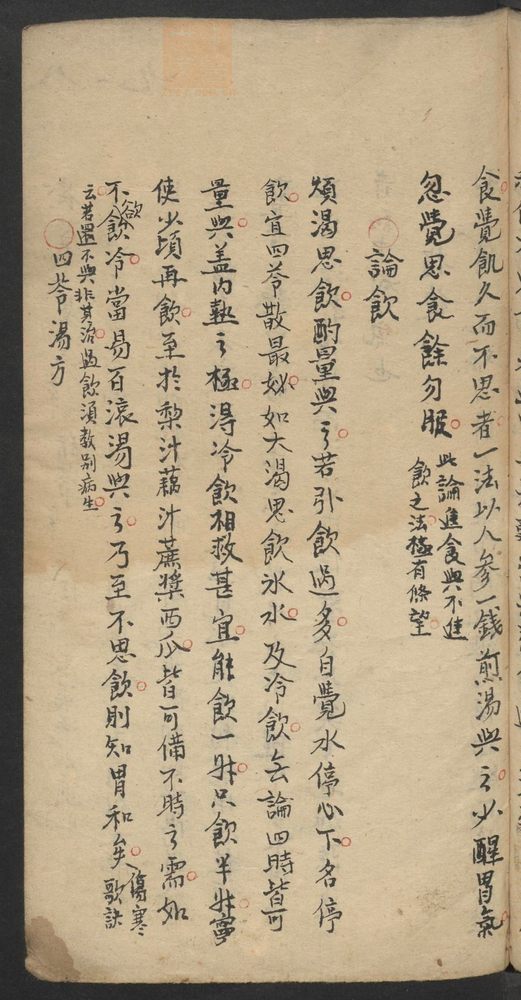 食覺飢久而不思者一法以人參一錢煎湯與之少醒胃氣
忽覺思食餘勿服
此論進食與不進
飲之法極有條望
論飲
煩渴思飲酌量與之若引飲過多自覺水停心下名停
飲宜四苓散最妙如大渴思飲冰水及冷飲無論四時皆可
量與盖內熱之極得冷飲相救甚宜能飲一升只飲半升寧
使少頃再飲至於梨汁藕汁蔗漿西瓜皆可備不時之需如
不欲飲冷當易百滾湯與之乃至不思飲則知胃和矣
傷寒
歌訣
云若還不與非其治過飲須教別病生
四苓湯方